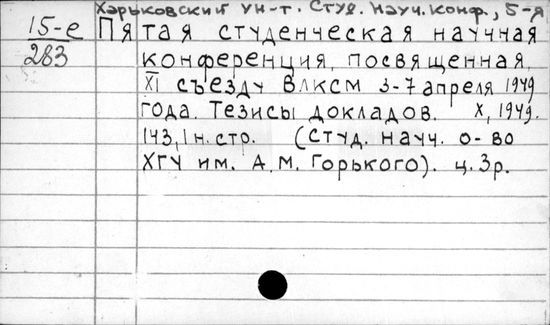 Харьковский ун-т. Студ. науч. конф., 5-я
15-е Пятая студенческая научная
283 конференция, посвященная,
XI съезду ВЛКСМ 3-7 апреля 1949
года. Тезисы докладов. Х, 1949.
143, 1 н. стр. (Студ. науч. о-во
ХГУ им. А. М. Горького). ц. 3р.